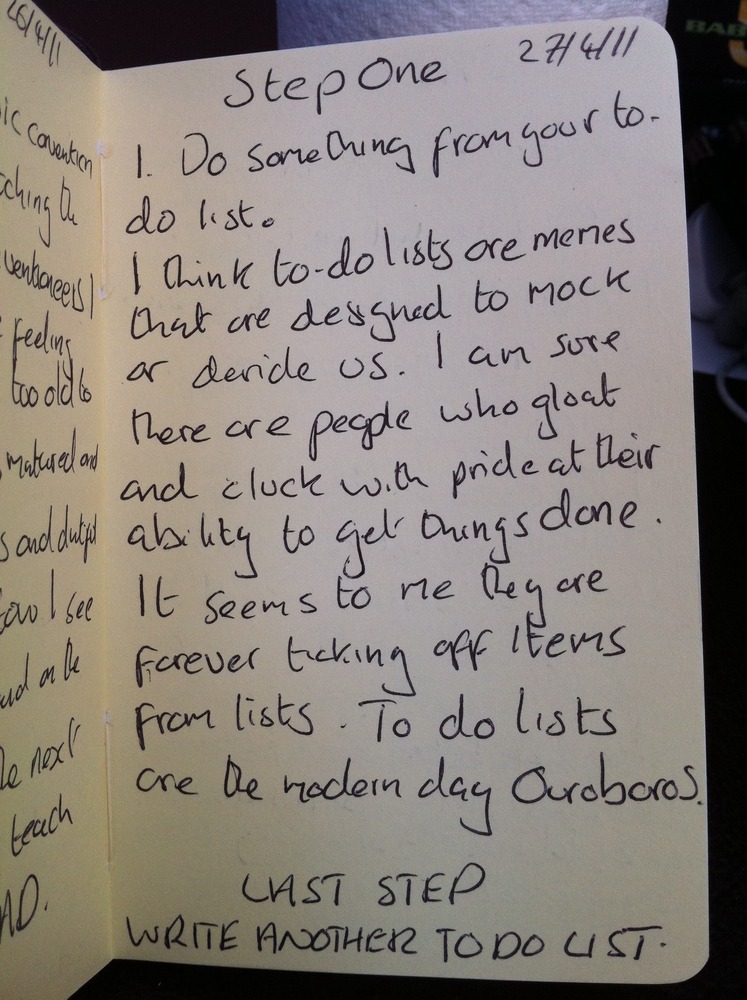 26/4/11
convention
the
feeling
too old to
matured and
and dutiful
I see
on the
next
teach
27/4/11
Step One
1. Do something from your to-
do list.
I think to-do lists are memes
that are designed to mock
or deride us. I am sure
there are people who gloat
and cluck with pride at their
ability to get things done.
It seems to me they are
forever ticking off items
from lists. To do lists
are the modern day Ouroboros.
LAST STEP
WRITE ANOTHER TO DO LIST.
BAB